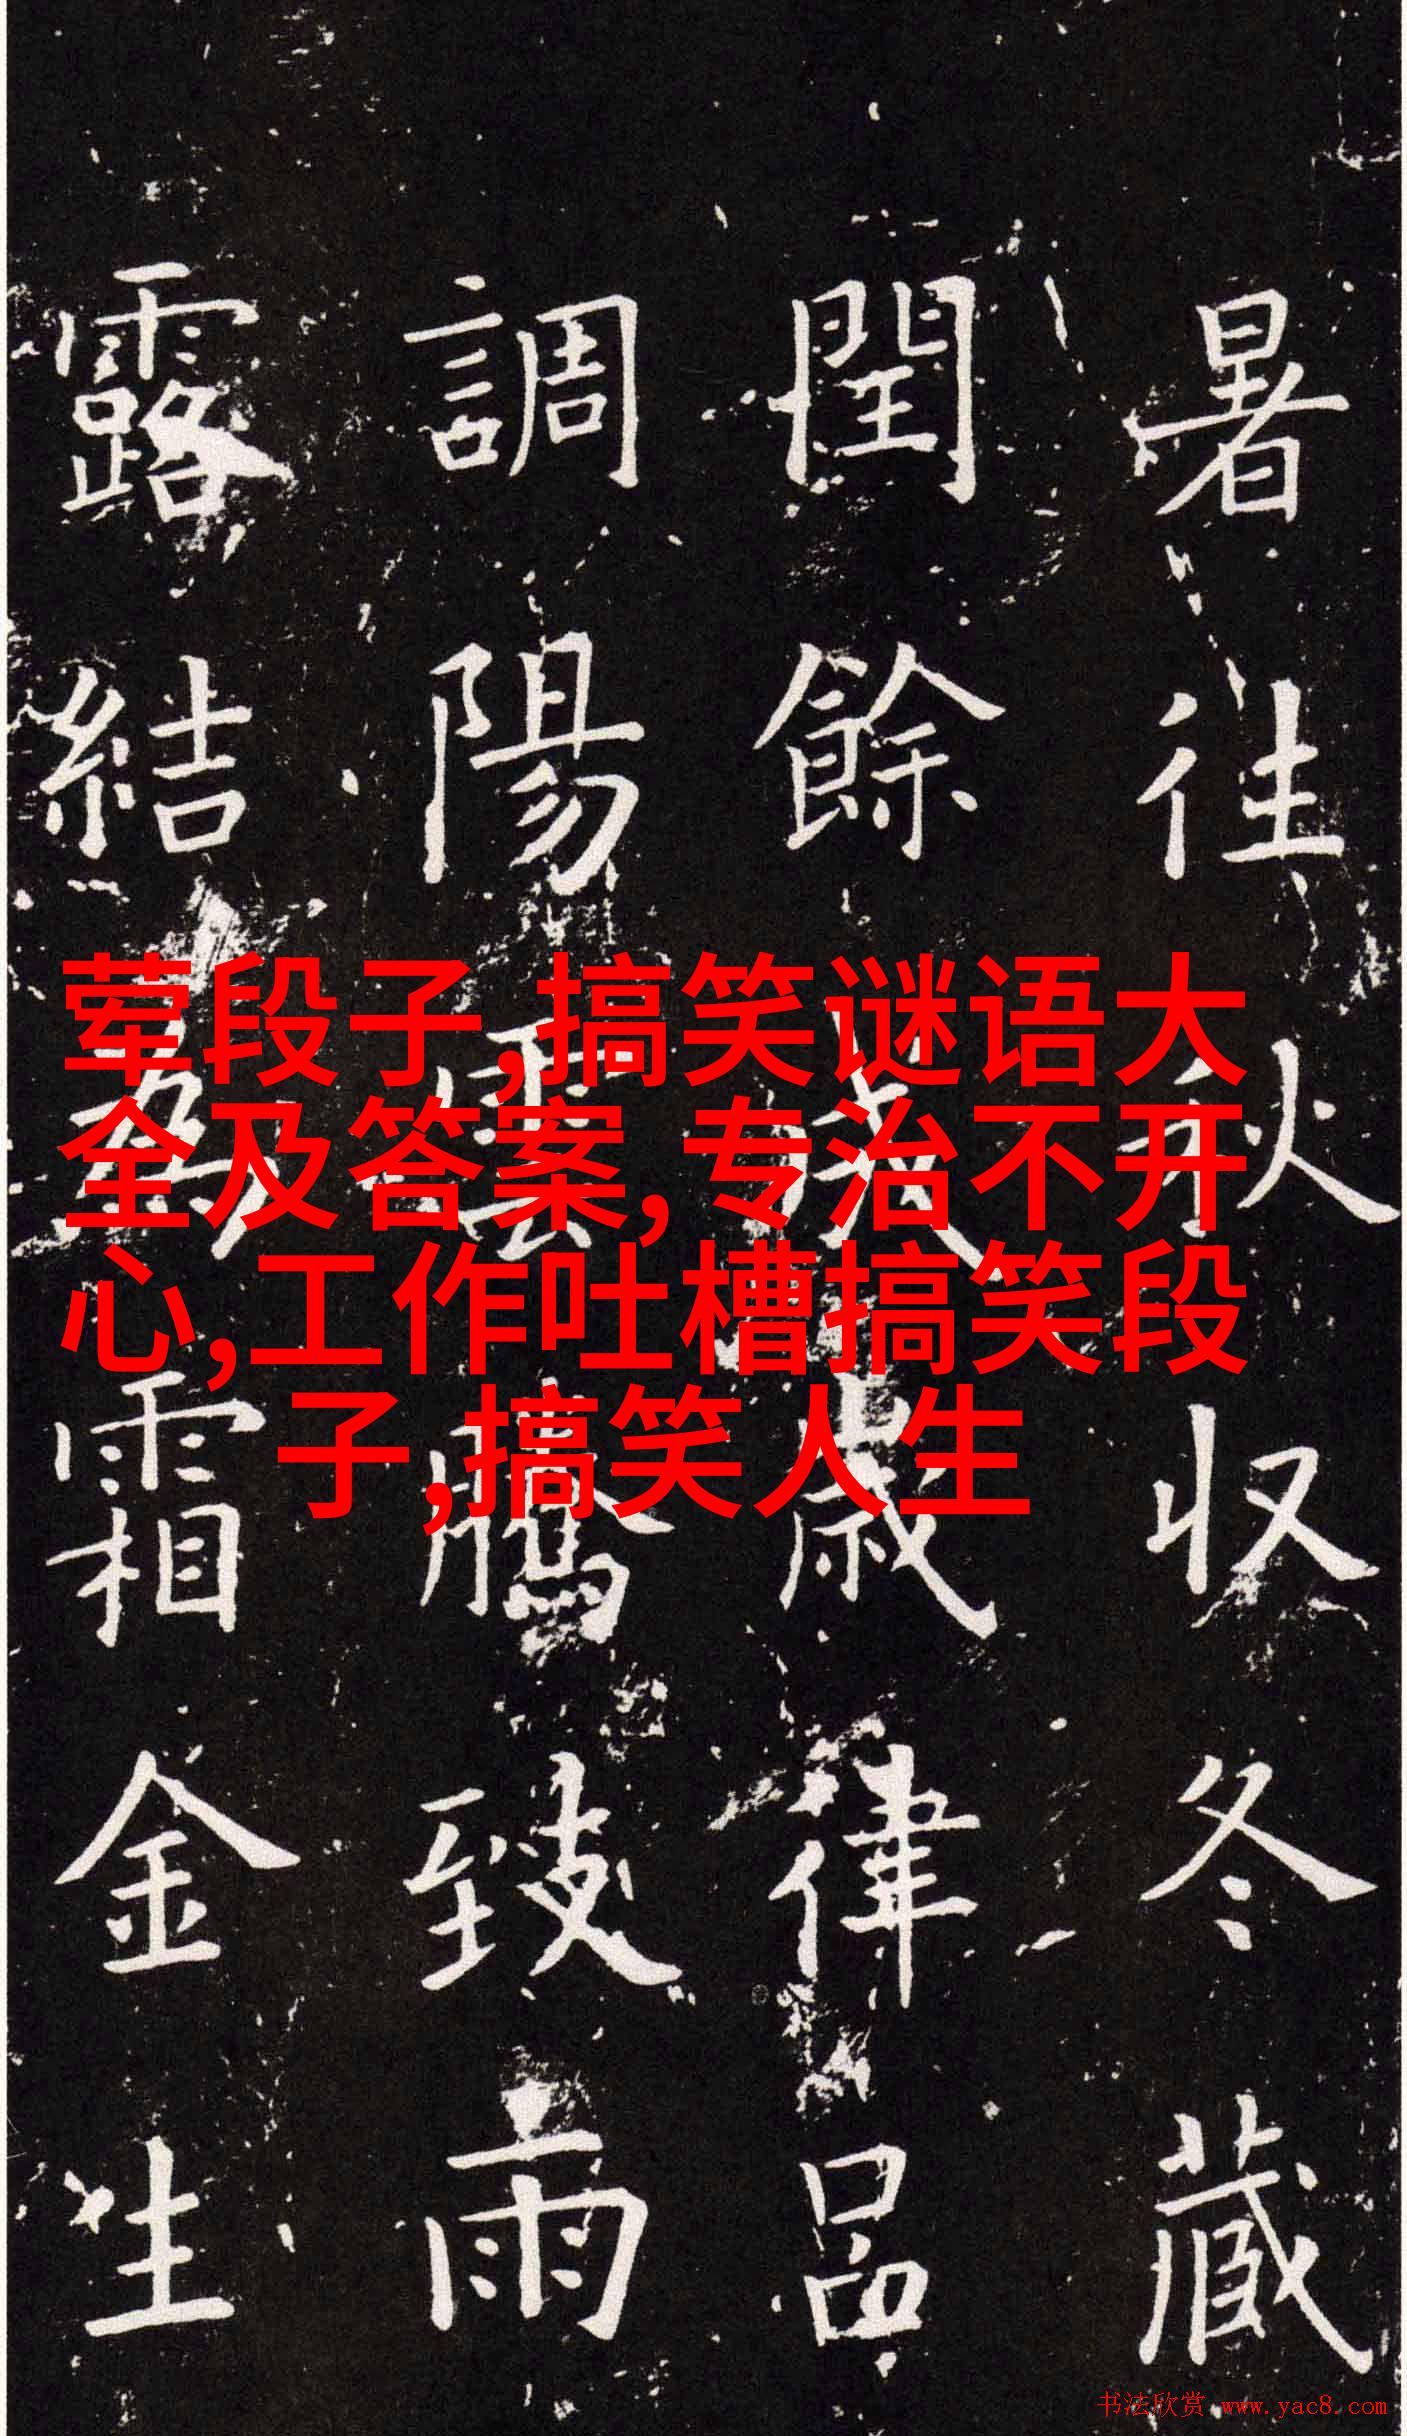 暑往秋收冬藏
閏餘成歲律吕
調陽雲騰致雨
露結為霜金生
荤段子,搞笑谜语大
全及答案,专治不开
心,工作吐槽搞笑段
子,搞笑人生
书法欣赏 www.yac8.com